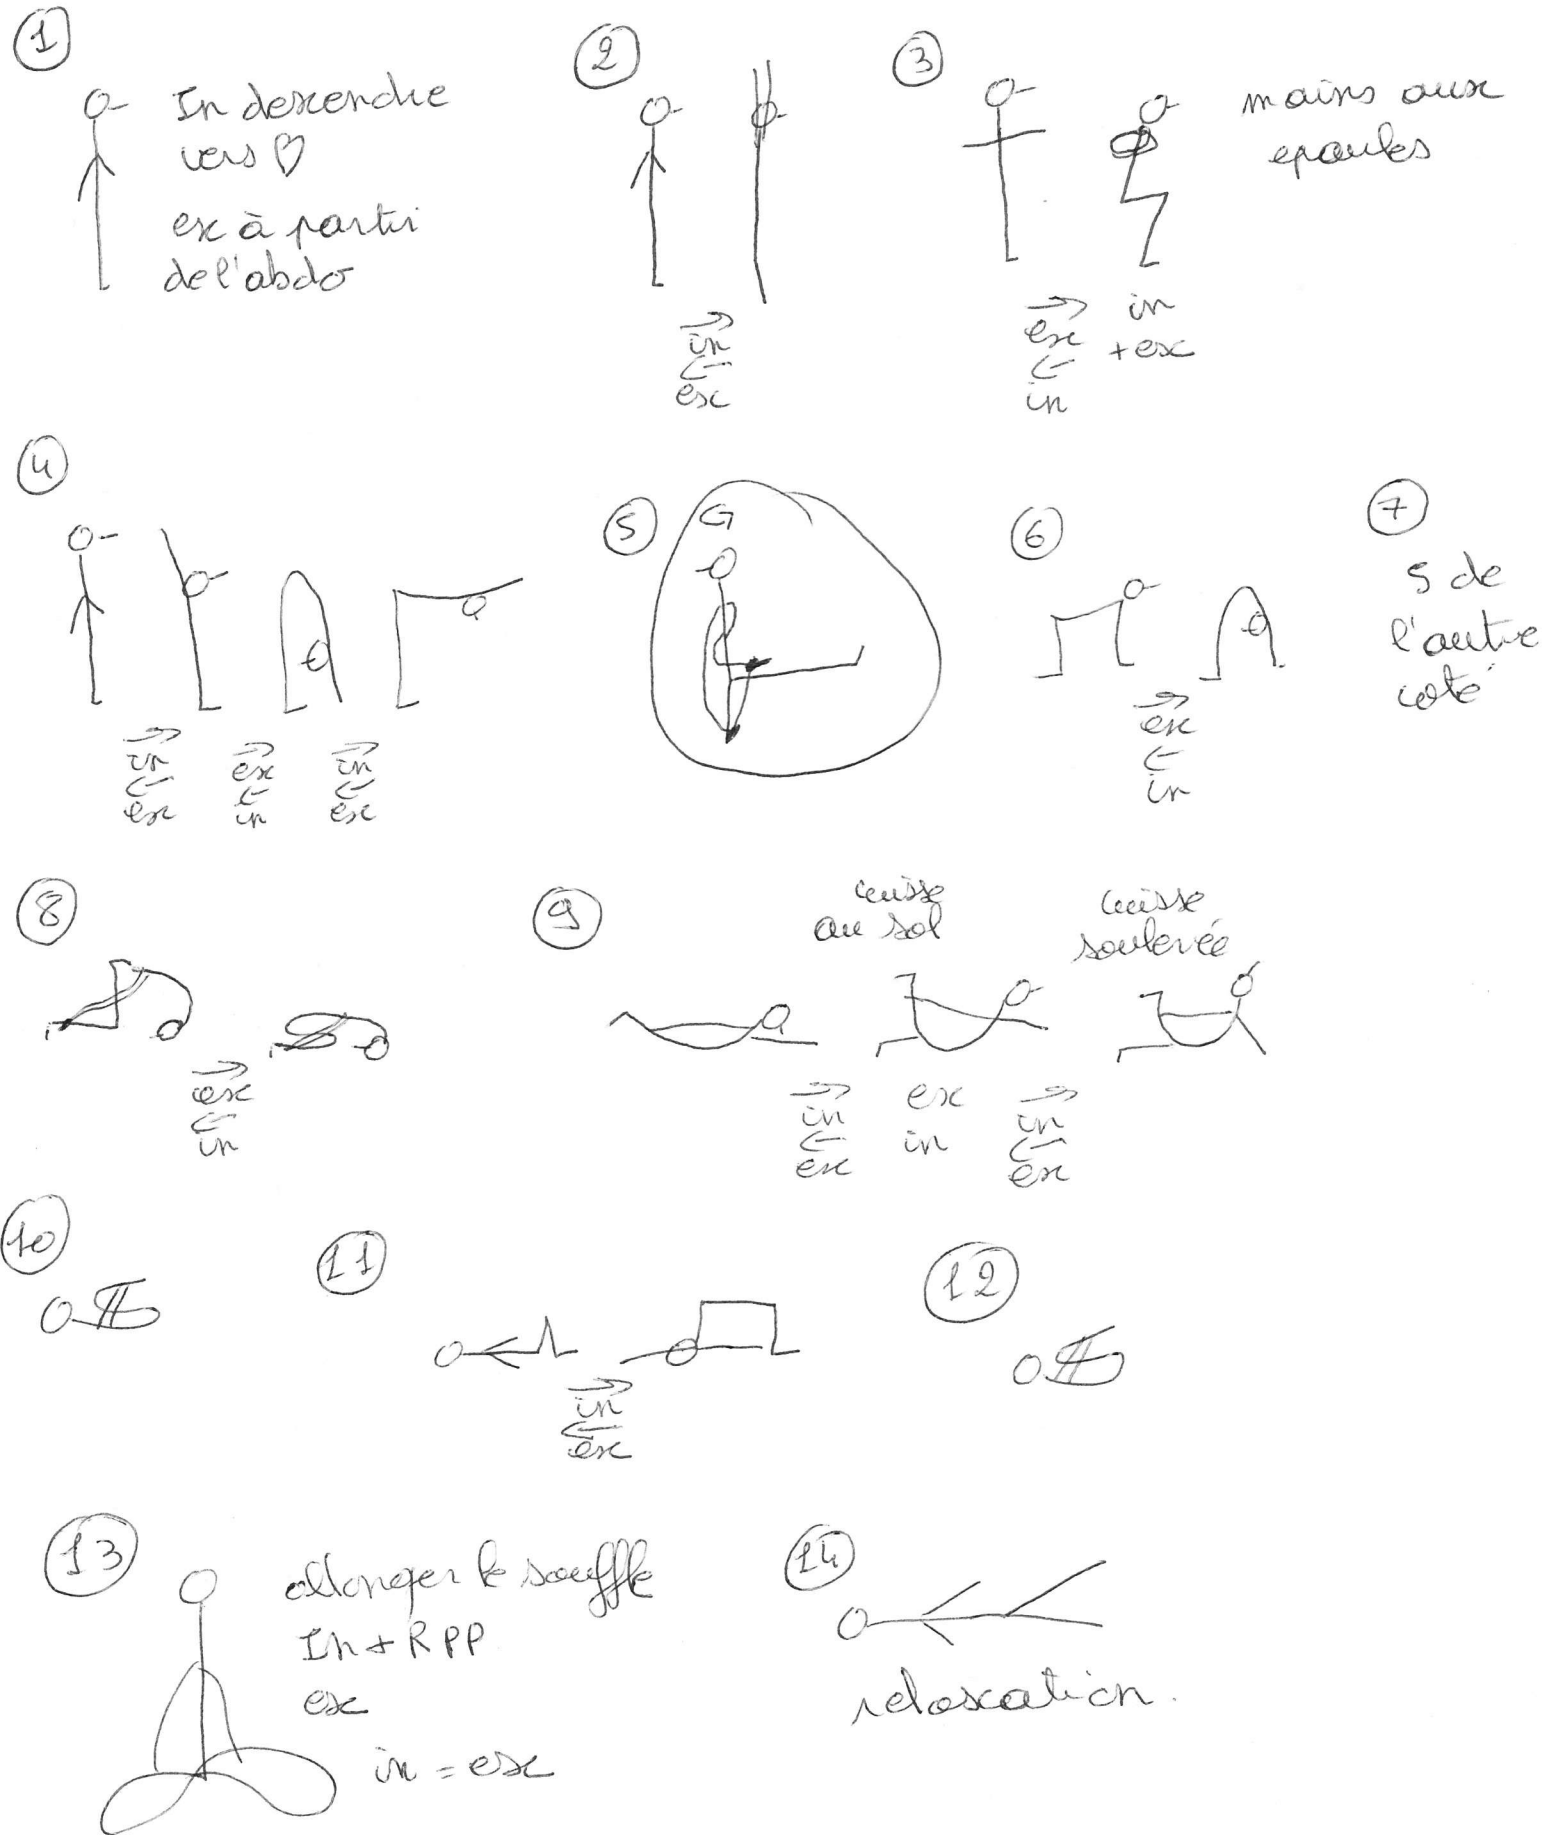 1
In descendre
vers ♡
ex à partir
de l'abdo
2
in
ex
3
mains aux
epaules
ex
in
in
+ ex
4
in
ex
ex
in
in
ex
5
G
6
ex
in
7
5 de
l'autre
coté
8
ex
in
9
cuisse
au sol
cuisse
soulevée
in
ex
ex
in
in
ex
10
11
in
ex
12
13
allonger le souffle
In + RPP
ex
in = ex
14
relaxation.